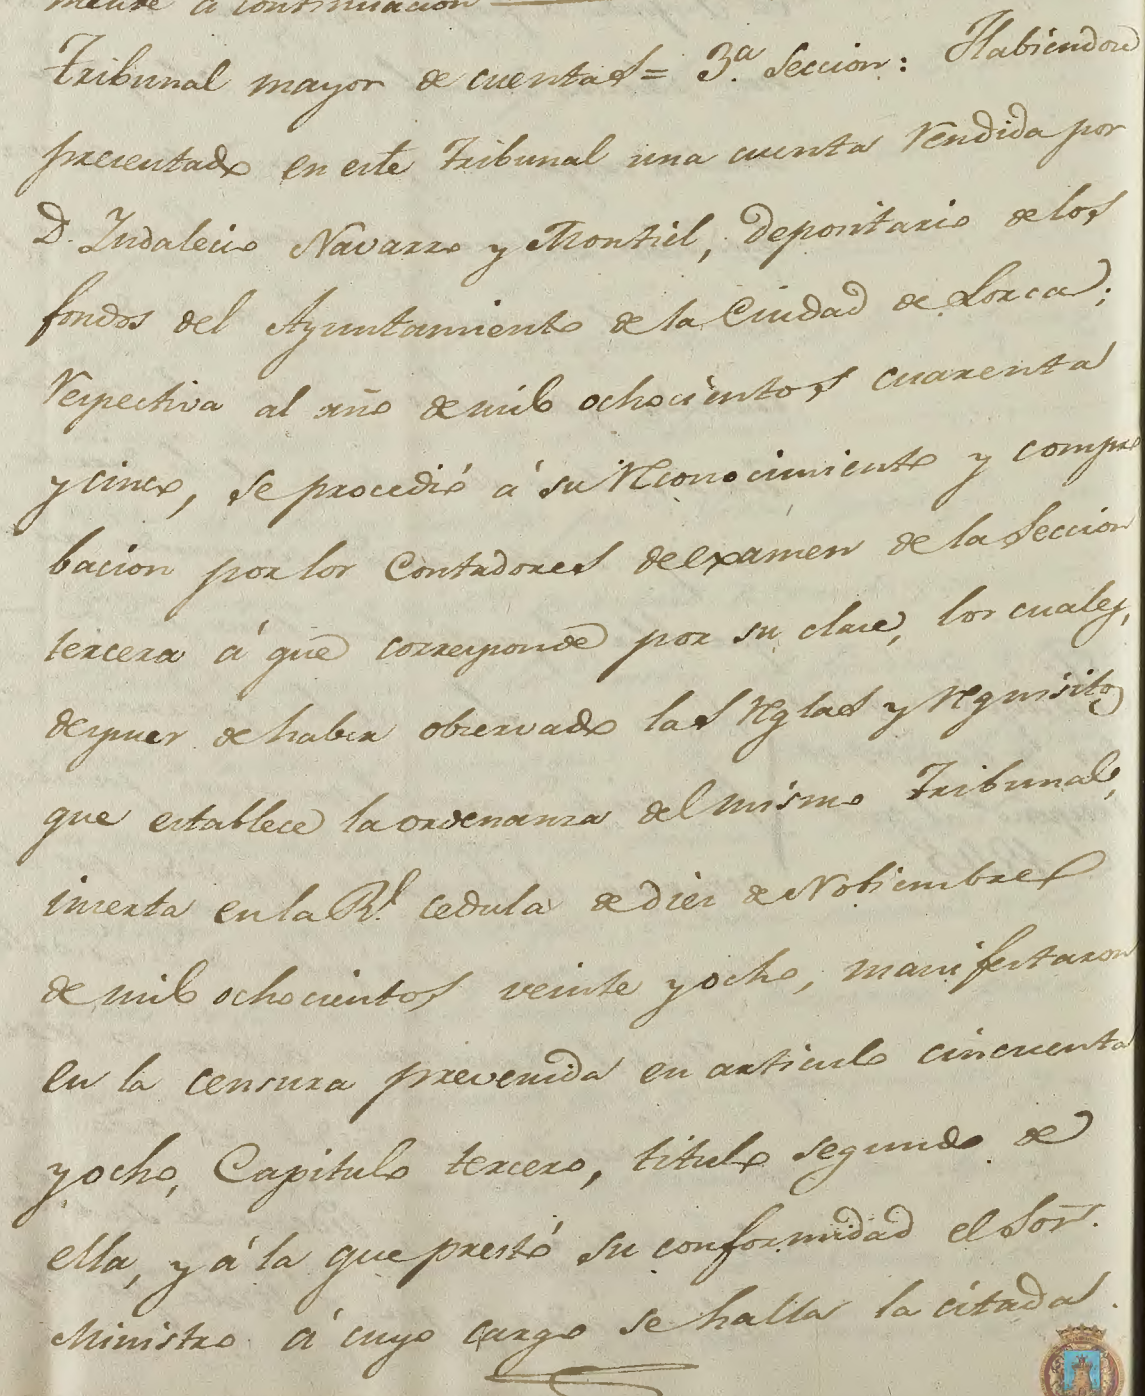 mente a continuacion
Tribunal mayor de cuentas = 3.ª Seccion: Habiendose
presentado en este Tribunal una cuenta rendida por
D. Indalecio Navarro y Montiel, depositario de los
fondos del Ayuntamiento de la Ciudad de Lorca;
respectiva al año de mil ochocientos cuarenta
y cinco, se procedió á su reconocimiento y compro
bacion por los Contadores de examen de la Seccion
tercera á que corresponde por su clase, los cuales,
despues de haber observado las reglas y requisitos
que establece la ordenanza del mismo Tribunal,
inserta en la Rl. cedula de diez de Nobiembre
de mil ochocientos veinte y ocho, manifestaron
en la censura prevenida en articulo cincuenta
y ocho, Capitulo tercero, titulo segundo de
ella, y á la que prestó su conformidad el Sor.
Ministro á cuyo cargo se halla la citada